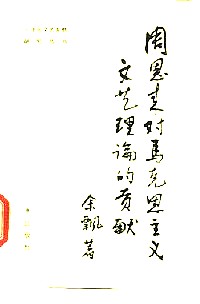 周恩来对马克思主义
文艺理论的贡献
余飘著